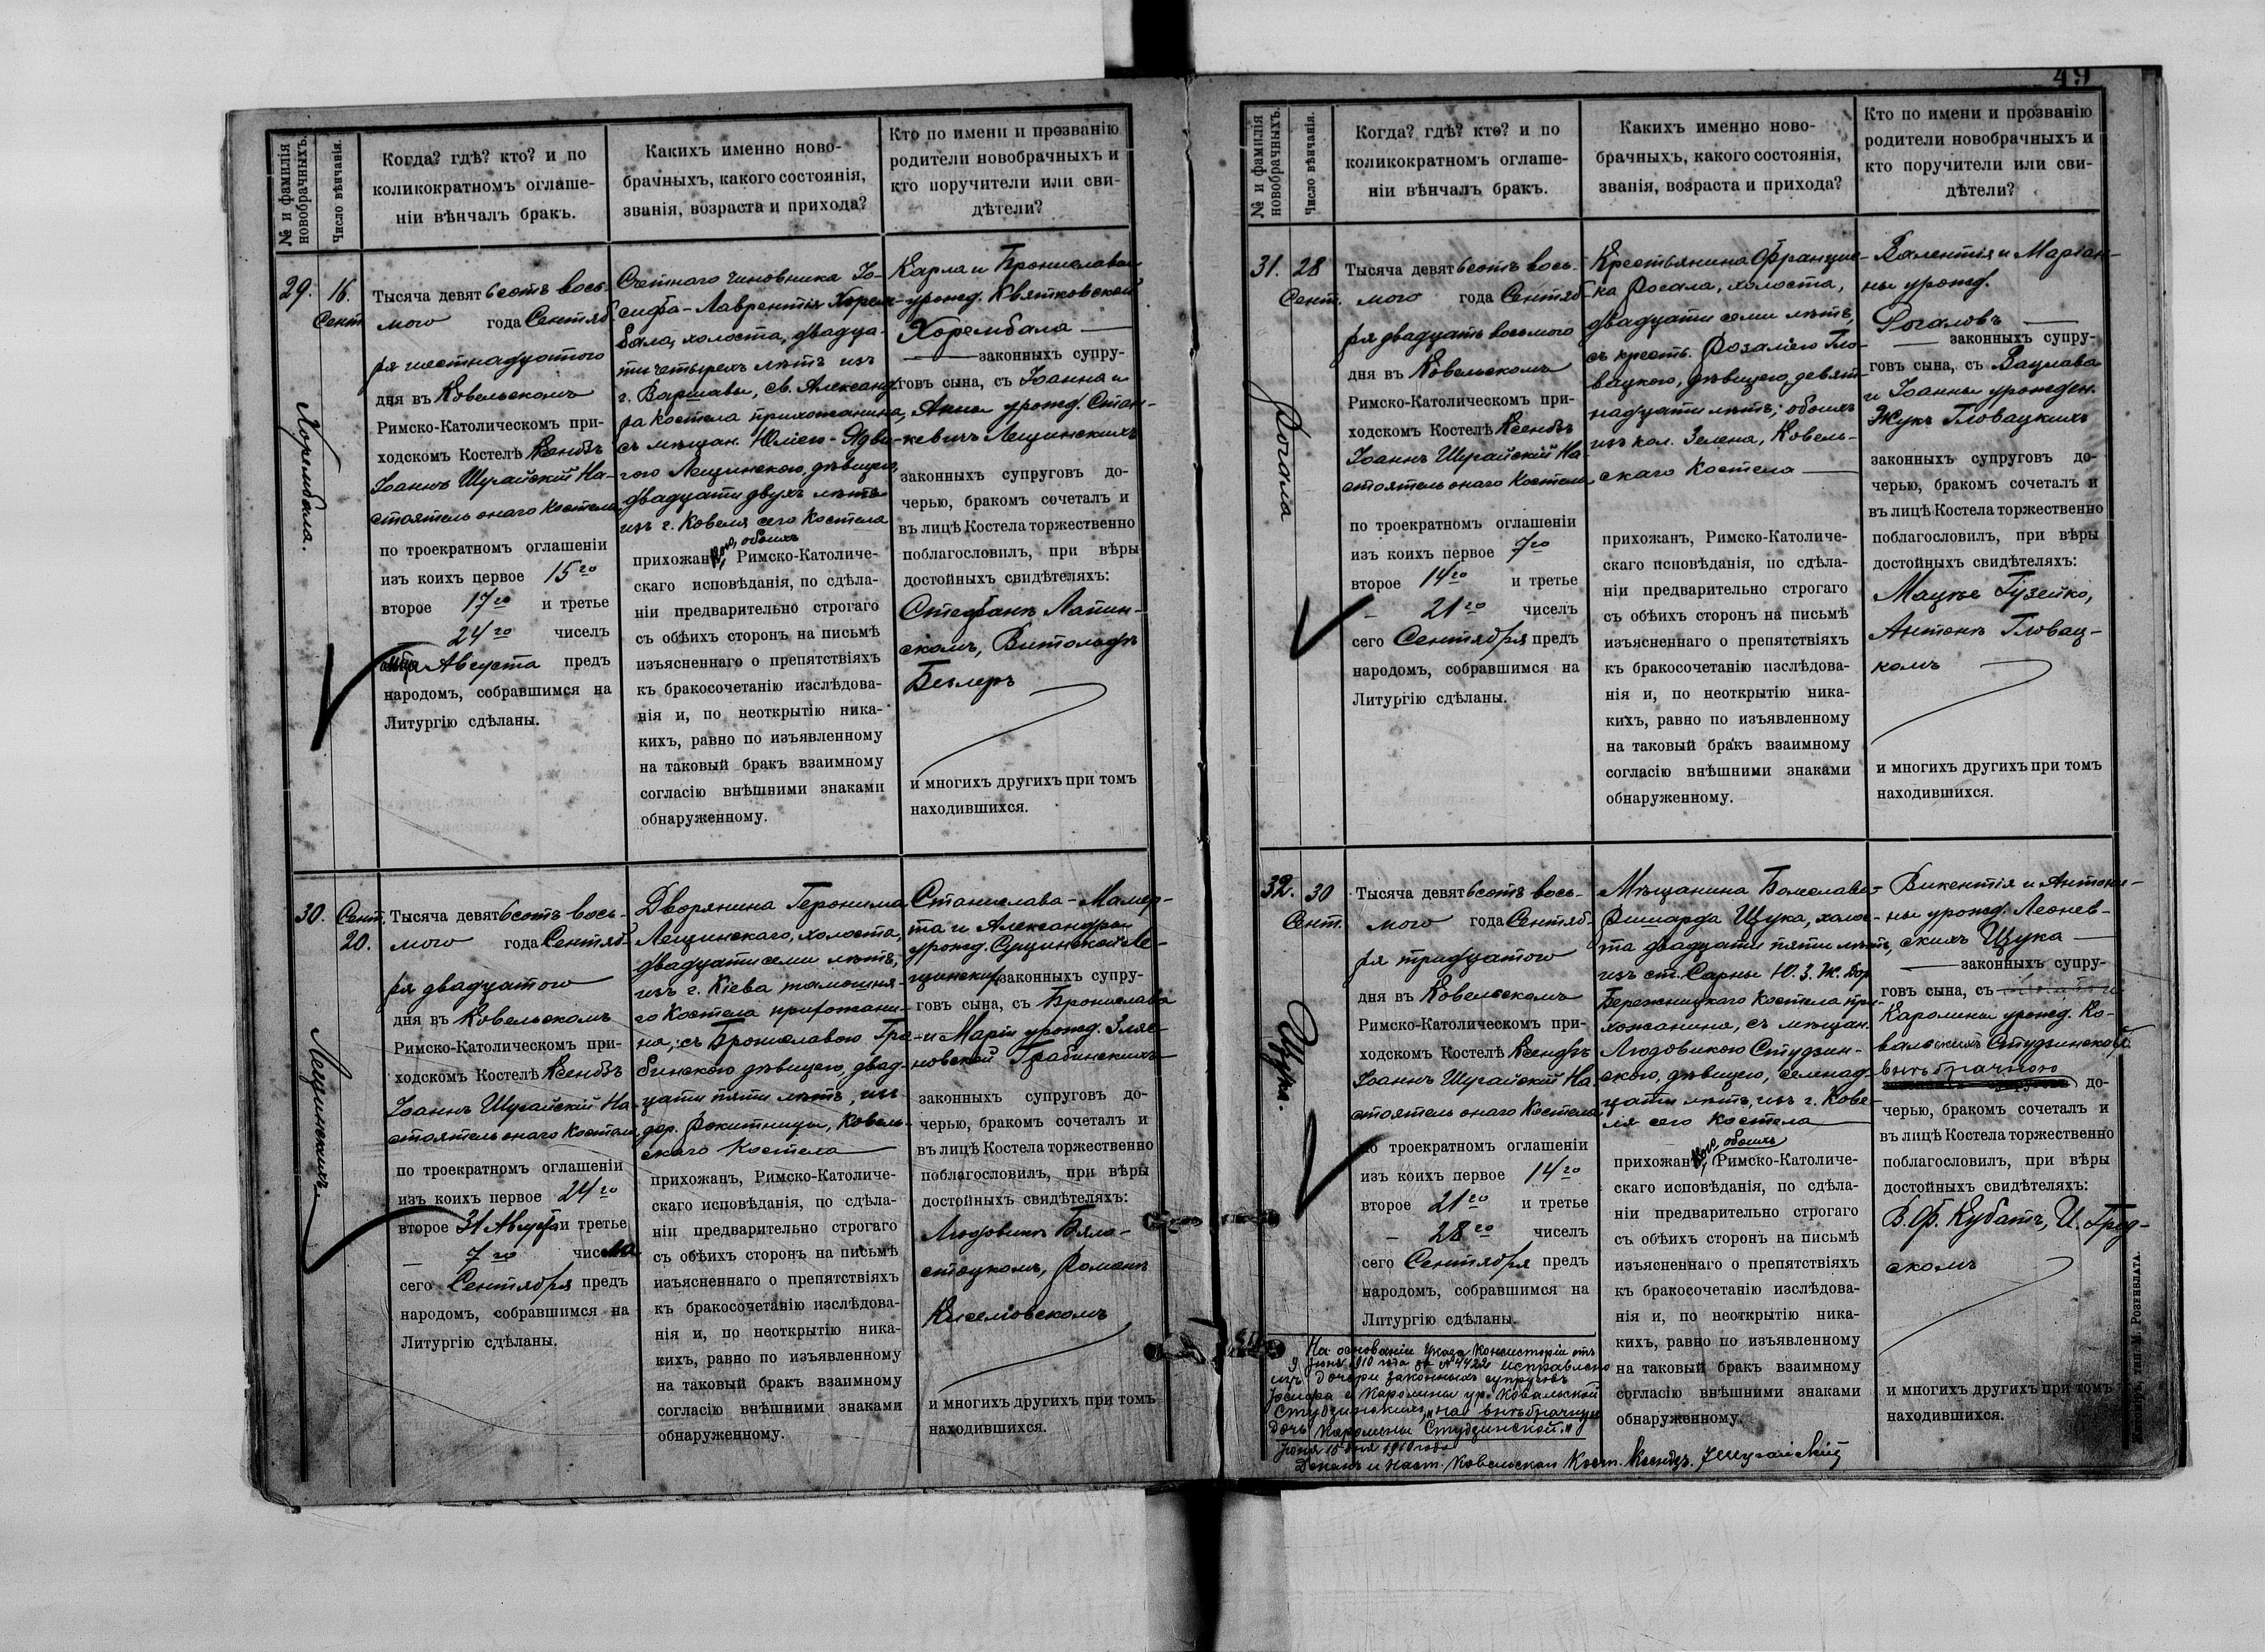 № и фамилія новобрачныхъ.
Число вѣнчанія.
Когда? гдѣ? кто? и по
коликократномъ оглаше-
ніи вѣнчалъ бракъ.
Какихъ именно ново-
брачныхъ, какого состоянія,
званія, возраста и прихода?
Кто по имени и прозванію
родители новобрачныхъ и
кто поручители или сви-
дѣтели?
29.
16.
Сент.
Хорембала.
Тысяча девятьсотъ вось-
мого года Сентяб-
ря шестнадцатого
дня въ Ковельскомъ
Римско-Католическомъ при-
ходскомъ Костелѣ Ксендзъ
Іоаннъ Шугайскій На-
стоятель онаго Костела
по троекратномъ оглашеніи
изъ коихъ первое 15го
второе 17го и третье
24го чиселъ
Августа предъ
народомъ, собравшимся на
Литургію сдѣланы.
Счетного чиновника Іо-
сифа-Лаврентія Хорем-
бала, холоста, двадца-
ти четырехъ лѣтъ изъ
г. Варшавы, св. Александ-
ра костела прихожанина,
съ мѣщан. Юліею-Ядви-
гою Лещинскою, дѣвицею,
двадцати двухъ лѣтъ
изъ г. Ковеля сего Костела
прихожан кою, обоихъ Римско-Католиче-
скаго исповѣданія, по сдѣла-
ніи предварительно строгаго
съ обѣихъ сторонъ на письмѣ
изъясненнаго о препятствіяхъ
къ бракосочетанію изслѣдова-
нія и, по неоткрытію ника-
кихъ, равно по изъявленному
на таковый бракъ взаимному
согласію внѣшними знаками
обнаруженному.
Карла и Брониславы
урожд. Квятковской
Хорембала
законныхъ супру-
говъ сына, съ Іоанна и
Анны урожд. Стан-
кевичъ Лещинскихъ
законныхъ супруговъ до-
черью, бракомъ сочеталъ и
въ лицѣ Костела торжественно
поблагословилъ, при вѣры
достойныхъ свидѣтеляхъ:
Стефанъ Лапин-
скомъ, Витольдъ
Беллеръ
и многихъ другихъ при томъ
находившихся.
30.
Сент.
20.
Лещинскихъ.
Тысяча девятьсотъ вось-
мого года Сентяб-
ря двадцатого
дня въ Ковельскомъ
Римско-Католическомъ при-
ходскомъ Костелѣ Ксендзъ
Іоаннъ Шугайскій На-
стоятель онаго Костела
по троекратномъ оглашеніи
изъ коихъ первое 24го
второе 31 Августа и третье
7го числа
сего Сентября предъ
народомъ, собравшимся на
Литургію сдѣланы.
Дворянина Геронима
Лещинскаго, холоста,
двадцати семи лѣтъ,
изъ г. Кіева тамошня-
го Костела прихожани-
на, съ Брониславою Гра-
бинскою дѣвицею, двад-
цати пяти лѣтъ, изъ
дер. Рокитницы, Ковель-
скаго Костела
прихожанъ, Римско-Католиче-
скаго исповѣданія, по сдѣла-
ніи предварительно строгаго
съ обѣихъ сторонъ на письмѣ
изъясненнаго о препятствіяхъ
къ бракосочетанію изслѣдова-
нія и, по неоткрытію ника-
кихъ, равно по изъявленному
на таковый бракъ взаимному
согласію внѣшними знаками
обнаруженному.
Станислава-Мамер-
та и Александры
урожд. Сущинской Ле-
щинскихъ законныхъ супру-
говъ сына, съ Бронислава
и Маріи урожд.
новской Грабинскихъ
законныхъ супруговъ до-
черью, бракомъ сочеталъ и
въ лицѣ Костела торжественно
поблагословилъ, при вѣры
достойныхъ свидѣтеляхъ:
Людовикъ Бяло-
стоцкомъ, Романъ
Киселіовскомъ
и многихъ другихъ при томъ
находившихся.
49
№ и фамилія новобрачныхъ.
Число вѣнчанія.
Когда? гдѣ? кто? и по
коликократномъ оглаше-
ніи вѣнчалъ бракъ.
Какихъ именно ново-
брачныхъ, какого состоянія,
званія, возраста и прихода?
Кто по имени и прозванію
родители новобрачныхъ и
кто поручители или сви-
дѣтели?
31.
28
Сент.
Рогала
Тысяча девятьсотъ вось-
мого года Сентяб-
ря двадцать восьмого
дня въ Ковельскомъ
Римско-Католическомъ при-
ходскомъ Костелѣ Ксендзъ
Іоаннъ Шугайскій На-
стоятель онаго Костела
по троекратномъ оглашеніи
изъ коихъ первое 7го
второе 14го и третье
21го чиселъ
сего Сентября предъ
народомъ, собравшимся на
Литургію сдѣланы.
Крестьянина Францис-
ка Рогала, холоста,
двадцати семи лѣтъ,
съ крестьян. Розаліею Гло-
вацкою, дѣвицею, девят-
надцати лѣтъ, обоихъ
изъ кол. Зелена, Ковель-
скаго Костела
прихожанъ, Римско-Католиче-
скаго исповѣданія, по сдѣла-
ніи предварительно строгаго
съ обѣихъ сторонъ на письмѣ
изъясненнаго о препятствіяхъ
къ бракосочетанію изслѣдова-
нія и, по неоткрытію ника-
кихъ, равно по изъявленному
на таковый бракъ взаимному
согласію внѣшними знаками
обнаруженному.
Валентія и Маріан-
ны урожд.
Рогаловъ
законныхъ супру-
говъ сына, съ Вацлава
и Іоанны урожден.
Жукъ Гловацкихъ
законныхъ супруговъ до-
черью, бракомъ сочеталъ и
въ лицѣ Костела торжественно
поблагословилъ, при вѣры
достойныхъ свидѣтеляхъ:
Мацѣе Гузейко,
Антонъ Гловац-
комъ
и многихъ другихъ при томъ
находившихся.
32.
30
Сент.
Щука.
Тысяча девятьсотъ вось-
мого года Сентяб-
ря тридцатого
дня въ Ковельскомъ
Римско-Католическомъ при-
ходскомъ Костелѣ Ксендзъ
Іоаннъ Шугайскій На-
стоятель онаго Костела
по троекратномъ оглашеніи
изъ коихъ первое 14го
второе 21го и третье
28го чиселъ
сего Сентября предъ
народомъ, собравшимся на
Литургію сдѣланы.
Мѣщанина Болеслава-
Ришарда Щука, холос-
та двадцати пяти лѣтъ,
изъ ст. Сарны Ю. З. Ж. Дор.
Бережницкаго Костела при-
хожанина, съ мѣщан.
Людовикою Студзин-
скою, дѣвицею, семнад-
цати лѣтъ, изъ г. Кове-
ля сего Костела
прихожан кою, обоихъ Римско-Католиче-
скаго исповѣданія, по сдѣла-
ніи предварительно строгаго
съ обѣихъ сторонъ на письмѣ
изъясненнаго о препятствіяхъ
къ бракосочетанію изслѣдова-
нія и, по неоткрытію ника-
кихъ, равно по изъявленному
на таковый бракъ взаимному
согласію внѣшними знаками
обнаруженному.
Викентія и Антони-
ны урожд. Леонев-
скихъ Щука
законныхъ супру-
говъ сына, съ
Каролины урожд. Ко-
вальскихъ Студзинской
внѣбрачною
до-
черью, бракомъ сочеталъ и
въ лицѣ Костела торжественно
поблагословилъ, при вѣры
достойныхъ свидѣтеляхъ:
В. Ф. Кубатъ, И. Грод-
скомъ
и многихъ другихъ при томъ
находившихся.
На основаніи Указа Консисторіи отъ
9 Іюня 1910 года за № 4422 исправлено
изъ дочери законныхъ супруговъ
Іосифа и Каролины ур. Ковальской
Студзинскихъ, „на внѣбрачную
дочь Каролины Студзинской."
Іюня 15 дня 1910 года
Деканъ и Наст. Ковельскаго Кост. Ксендзъ. ІШугайскій
тип. М. Розенблата.